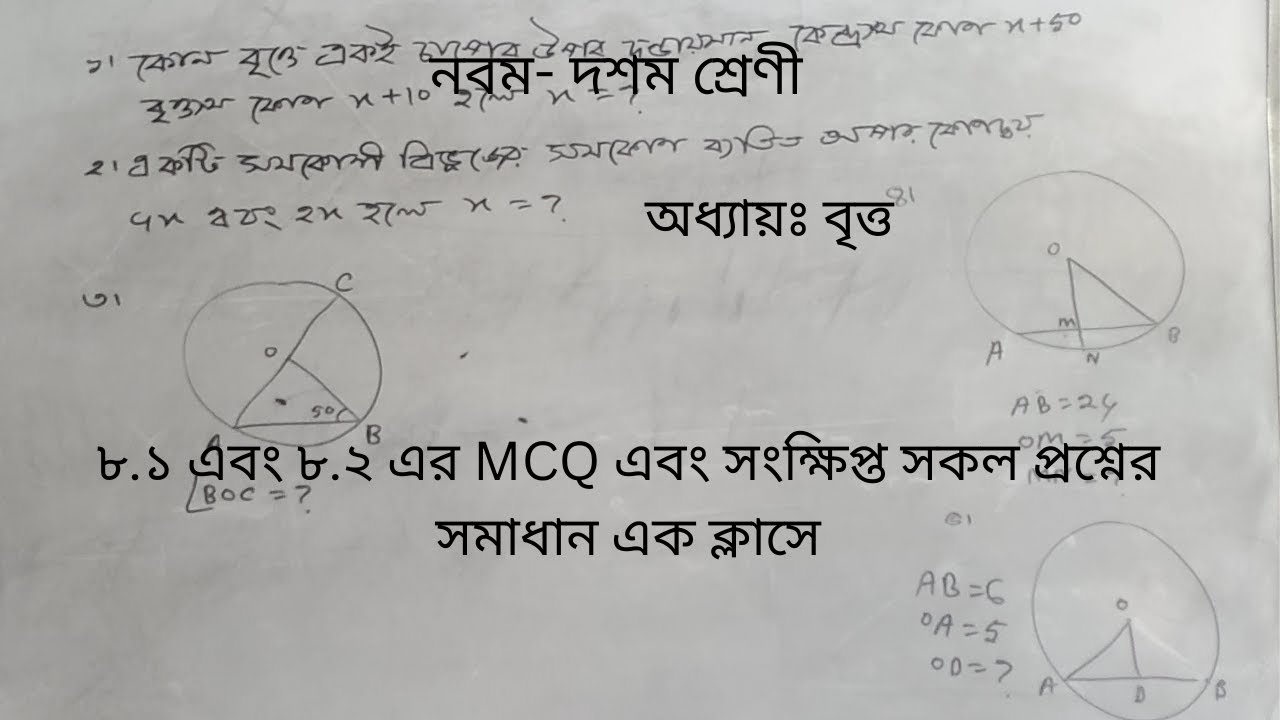 ১। কোন বৃত্তে একই চাপের উপর দন্ডায়মান কেন্দ্রস্থ কোণ x+50
নবম- দশম শ্রেণী
বৃত্তস্থ কোণ x+10 হলে x = ?
২। একটি সমকোণী ত্রিভুজের সমকোণ ব্যতিত অপর কোণদ্বয়
এবং 2x হলে x = ?
অধ্যায়ঃ বৃত্ত
৪।
৩।
C
O
50
A
B
O
M
A
N
B
AB = 24
OM = 5
৮.১ এবং ৮.২ এর MCQ এবং সংক্ষিপ্ত সকল প্রশ্নের
∠BOC = ?
সমাধান এক ক্লাসে
৫।
AB = 6
OA = 5
OD = ?
O
A
D
B